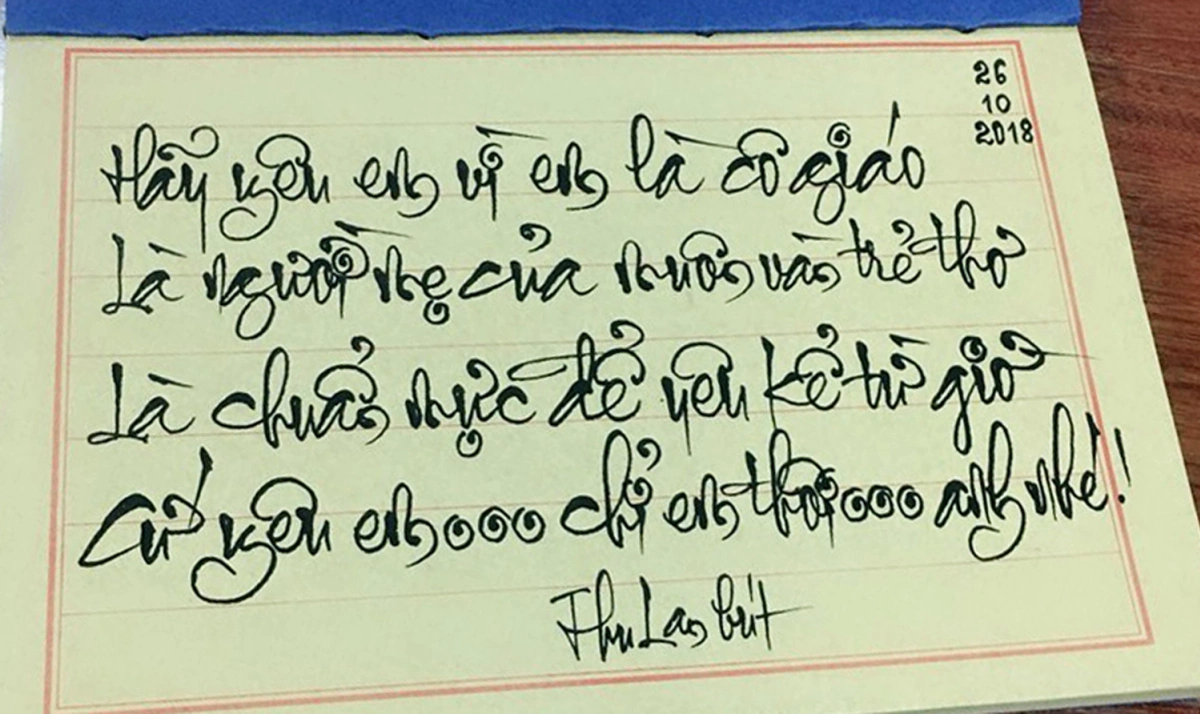 26
10
2018
Hãy yêu em vì em là cô giáo
Là người mẹ của muôn vàn trẻ thơ
Là chuẩn mực để yêu kể từ giờ
Cứ yêu em... chỉ em thôi... anh nhé!
Thu Lan bút